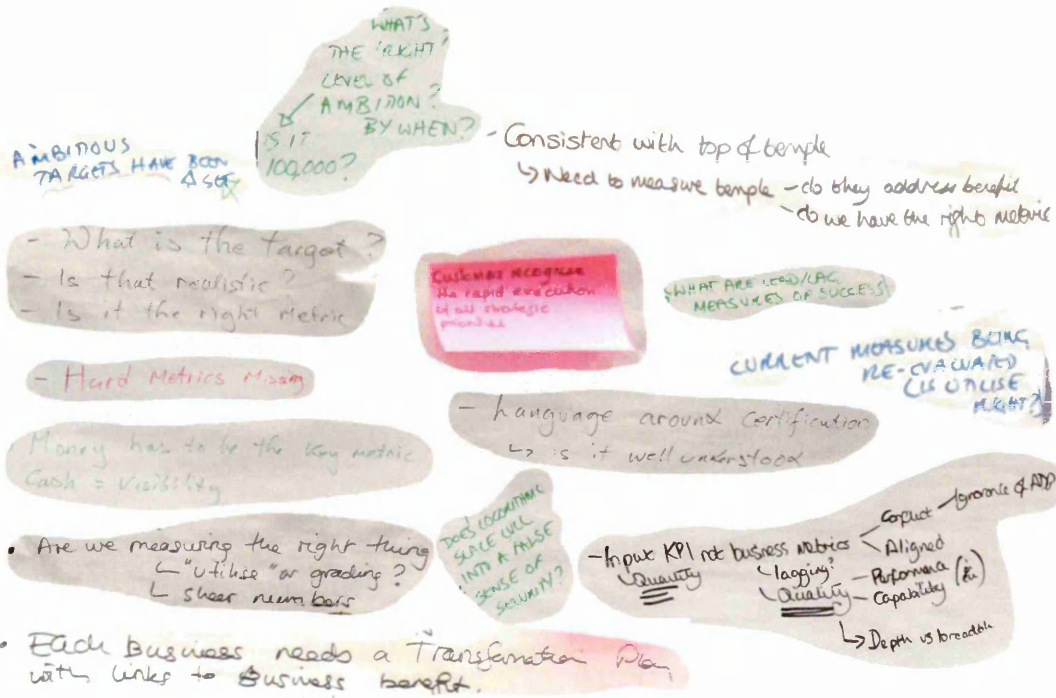 WHAT'S
THE 'RIGHT'
LEVEL OF
AMBITION?
BY WHEN?
IS IT
100,000?
AMBITIOUS
TARGETS HAVE BEEN
SET
- Consistent with top of temple
↳ Need to measure temple - do they address benefit
- do we have the right metric
- What is the target?
- Is that realistic?
- Is it the right Metric
Customers recognise
the rapid execution
of all strategic
priorities
WHAT ARE LEAD/LAG
MEASURES OF SUCCESS
CURRENT MEASURES BEING
RE-EVALUATED
(IS UTILISE
RIGHT?)
- Hard Metrics Missing
- Language around Certification
↳ is it well understood
Money has to be the key metric
Cash = Visibility
• Are we measuring the right thing
↳ "utilise" or grading?
↳ sheer numbers
DOES LOGARITHMIC
SCALE LULL
INTO A FALSE
SENSE OF
SECURITY?
- Input KPI not business metrics
↳ Quality
↳ lagging?
↳ Quality
Conflict - Ignorance of
Aligned
- Performance
- Capability
↳ Depth vs breadth
• Each Business needs a Transformation Plan
with links to Business benefit.